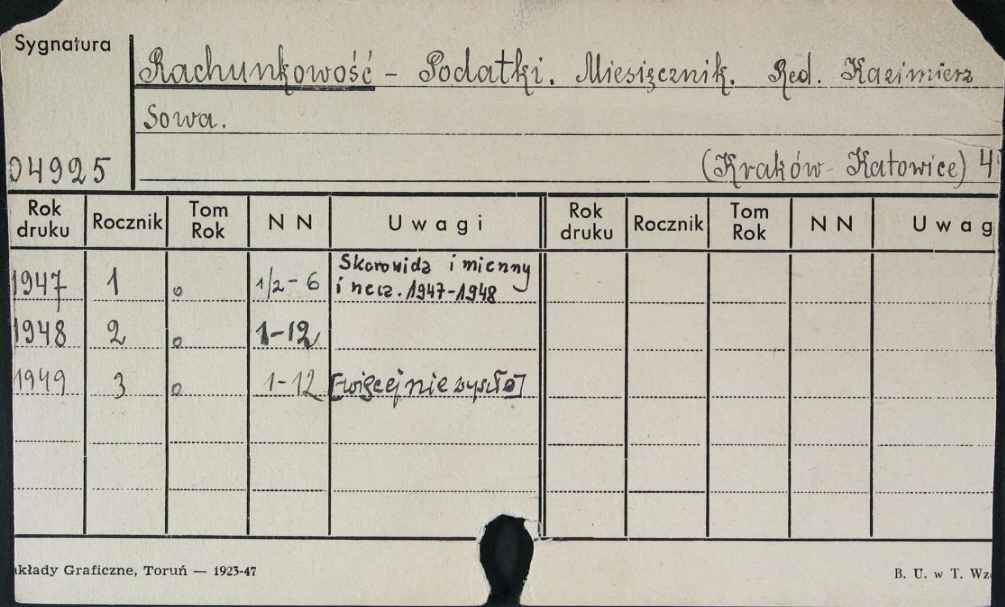 Sygnatura
Rachunkowość - Podatki. Miesięcznik. Red. Kazimierz
Sowa.
04925
(Kraków - Katowice) 4
Rok druku Rocznik Tom Rok N N Uwagi Rok druku Rocznik Tom Rok N N Uwag
1947 1 o 1/2-6 Skorowidz imienny i rzecz. 1947-1948
1948 2 o 1-12
1949 3 o 1-12 [więcej nie wyszło]
kłady Graficzne, Toruń — 1923-47
B. U. w T. Wz